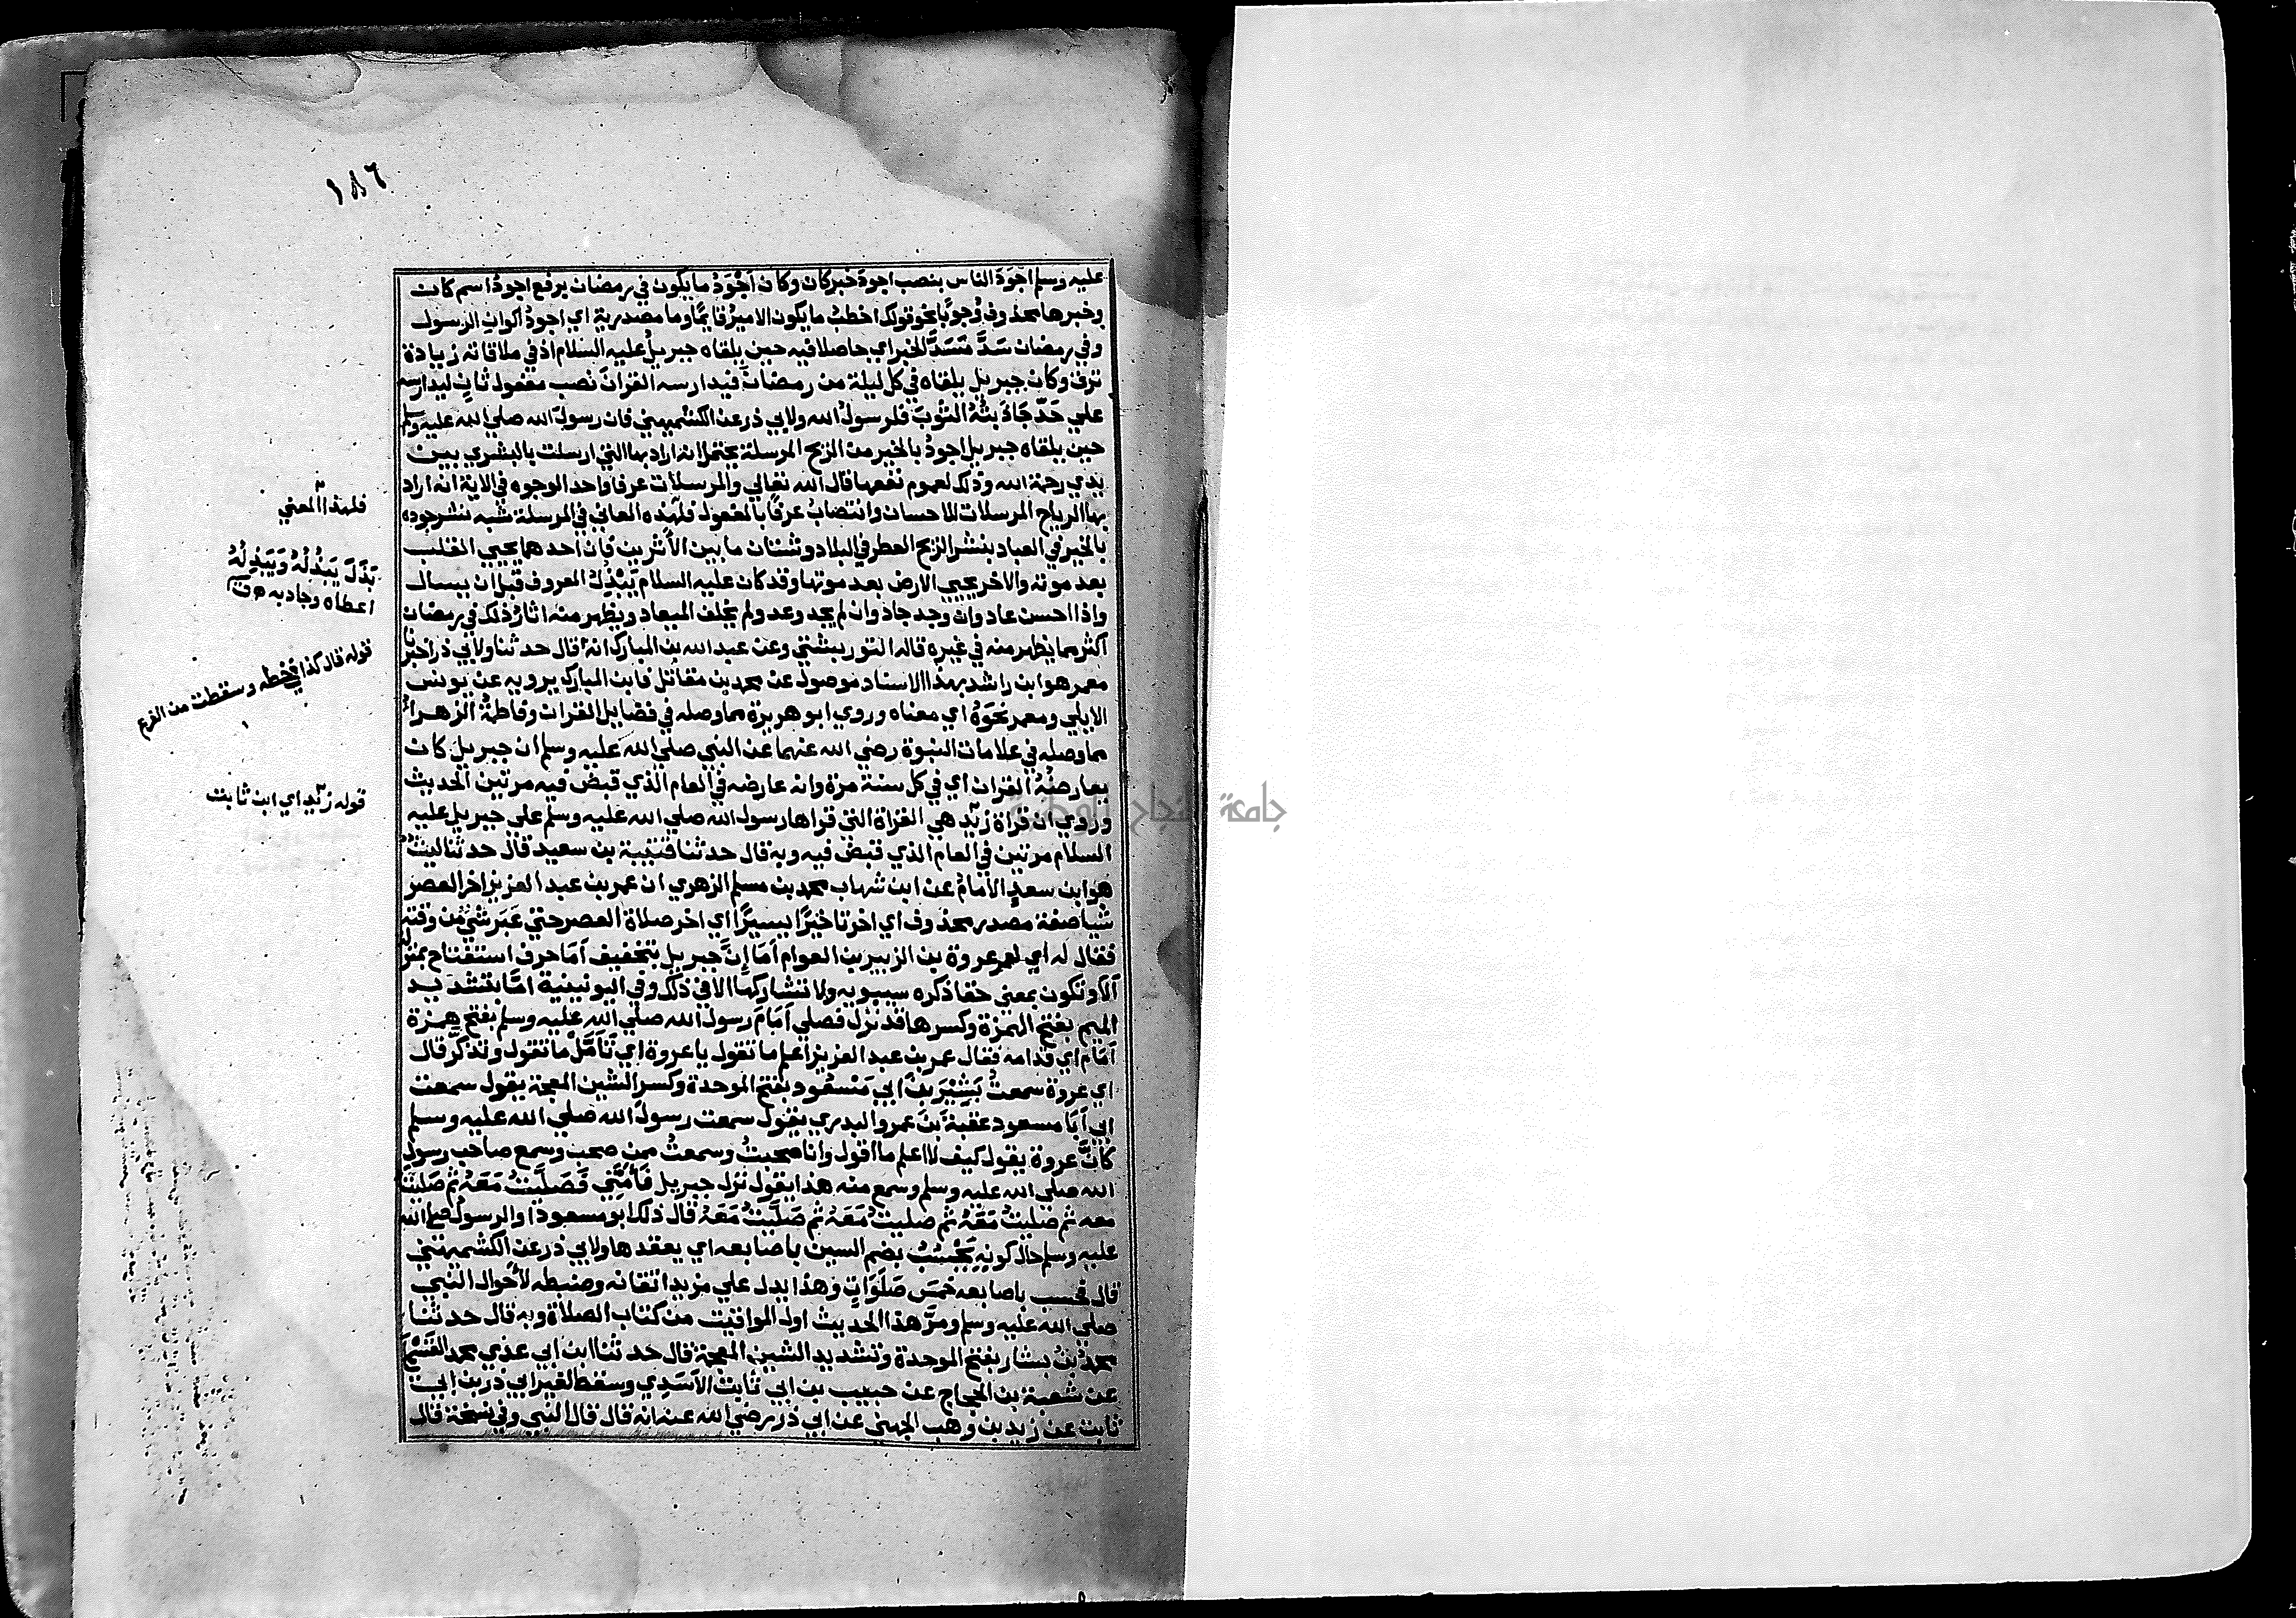 ١٨٦
عليه وسلم اجودَ الناس بنصب اجودَ خبر كان وكان اَجْوَدُ ما يكون في رمضان برفع اجودُ اسم كان
وخبرها محذوف وُجوبًا نحو قولك اخطبُ ما يكون الاميرُ قايمًا وما مصدرية اي اجودُ اكوانِ الرسول
وفي رمضان سَدَّ مَسَدَّ الخبر اي حاصلا فيه حين يلقاه جبريلُ عليه السلام اذ في ملاقاته زيادة
ترق وكان جبريل يلقاه في كل ليلة من رمضانَ فيدارسه القرانَ نصب مفعول ثانٍ ليدارسه
علي حَدّ جَاذَبتُهُ الثوبَ فلرسولُ الله ولابي ذر عن الكشميهني فان رسولَ الله صلي الله عليه وسلم
حين يلقاه جبريل اجودُ بالخير من الريح المرسلة يحتمل انه اراد بها التي ارسلت بالبشري بين
يدي رحمة الله وذلك لعموم نفعها قال الله تعالي والمرسلات عرفا واحد الوجوه في الاية انه اراد
بها الرياح المرسلات للاحسان وانتصابُ عرفًا بالمفعول فلهذه المعاني في المرسلة شبه نشر جوده
بالخير في العباد بنشر الريح العطر في البلاد وشتان ما بين الأثرين فان احدهما يحيي القلب
بعد موته والاخر يحيي الارض بعد موتها وقد كان عليه السلام يَبْذِلُ المعروف قبل ان يسال
واذا احسن عاد وان وجد جاد وان لم يجد وعد ولم يخلف الميعاد ويظهر منه اثارُ ذلك في رمضان
اكثر مما يظهر منه في غيره قاله التوربشتي وعن عبد الله بن المبارك انه قال حدثنا ولابي ذر اخبرنا
معمر هو ابن راشد بهذا الاسناد موصول عن محمد بن مقاتل فابن المبارك يرويه عن يونس
الايلي ومعمر نحوَهُ اي معناه وروي ابو هريرة مما وصله في فضايل القران وفاطمةُ الزهراءُ
مما وصله في علامات النبوة رضي الله عنهما عن النبي صلي الله عليه وسلم ان جبريل كان
يعارضُهُ القران اي في كل سنة مرة وانه عارضه في العام الذي قبض فيه مرتين الحديث
وروي ان قراة زيد هي القراة التي قراها رسول الله صلي الله عليه وسلم علي جبريل عليه
السلام مرتين في العام الذي قبض فيه وبه قال حدثنا قتيبة بن سعيد قال حدثنا ليث
هو ابن سعدٍ الامامُ عن ابن شهاب محمد بن مسلم الزهري ان عمر بن عبد العزيز اخر العصر
شيا صفة مصدر محذوف اي اخر تاخيرًا يسيرًا اي اخر صلاة العصر حتي عَبَر شيٌ من وقته
فقال له اي لعمر عروة بن الزبير بن العوام اَمَا إنَّ جبريل بتخفيف اَمَا حرف استفتاح بمنزلة
اَلَا وتكون بمعني حقا ذكره سيبويه ولا تشاركها الا في ذلك وفي اليونينية امَّا بتشديد
الميم بفتح الهمزة وكسرها قد نزل فصلي اَمَامَ رسول الله صلي الله عليه وسلم بفتح هِمزة
اَمَام اي قدامه فقال عمر بن عبد العزيز اعلم ما تقول يا عروة اي تَاَمَّلْ ما تقول وتذكَّر قال
اي عروة سمعتُ بَشِيْرَ بنَ ابي مَسْعُود بفتح الموحدة وكسر الشين المعجمة يقول سمعت
ابي اَبَا مسعود عقبةَ بنَ عمرو البدري يقول سمعت رسولَ الله صلي الله عليه وسلم
كانَّ عروة يقول كيف لا اعلم ما اقول وانا صحبتُ وسمعتُ ممن صحب وسمع صاحب رسولِ
الله صلي الله عليه وسلم وسمع منه هذا يقول نزل جبريل فَأمَّنِي فَصَلَّيْتُ مَعَهُ ثم صَلَيتُ
معه ثم صليتُ مَعَهُ ثم صليتُ مَعَهُ ثم صَلَّيْتُ مَعَهُ قال ذلك ابو مسعود او الرسولُ صلي الله
عليه وسلم حال كونِهِ يَحْسُبُ بضم السين باصابعه اي يعقدها ولابي ذر عن الكشميهني
قال فحسب باصابعه خمسَ صَلَوَاتٍ وهذا يدل علي مزيد اتقانه وضبطه لأحوال النبي
صلي الله عليه وسلم ومرَّ هذا الحديث اول المواقيت من كتاب الصلاة وبه قال حدثنا
محمدُ بنُ بشار بفتح الموحدة وتشديد الشين المعجمة قال حدثنا ابن ابي عدي محمد القسملي
عن شعبة بن الحجاج عن حبيب بن ابي ثابت الاَسَدِي وسقط لغير ابي ذر بن ابي
ثابت عن زيد بن وهب الجهني عن ابي ذر رضي الله عنه انه قال قال النبي وفي نسخة قال
فلهذا المعني
بَذَلَ يَبْذُلُهُ وَيَبْذِلُهُ
اعطاه وجاد به
قوله قال كذا بخطه وسقطت من الفرع
قوله زيد اي ابن ثابت
جامعة النجاح الوطنية